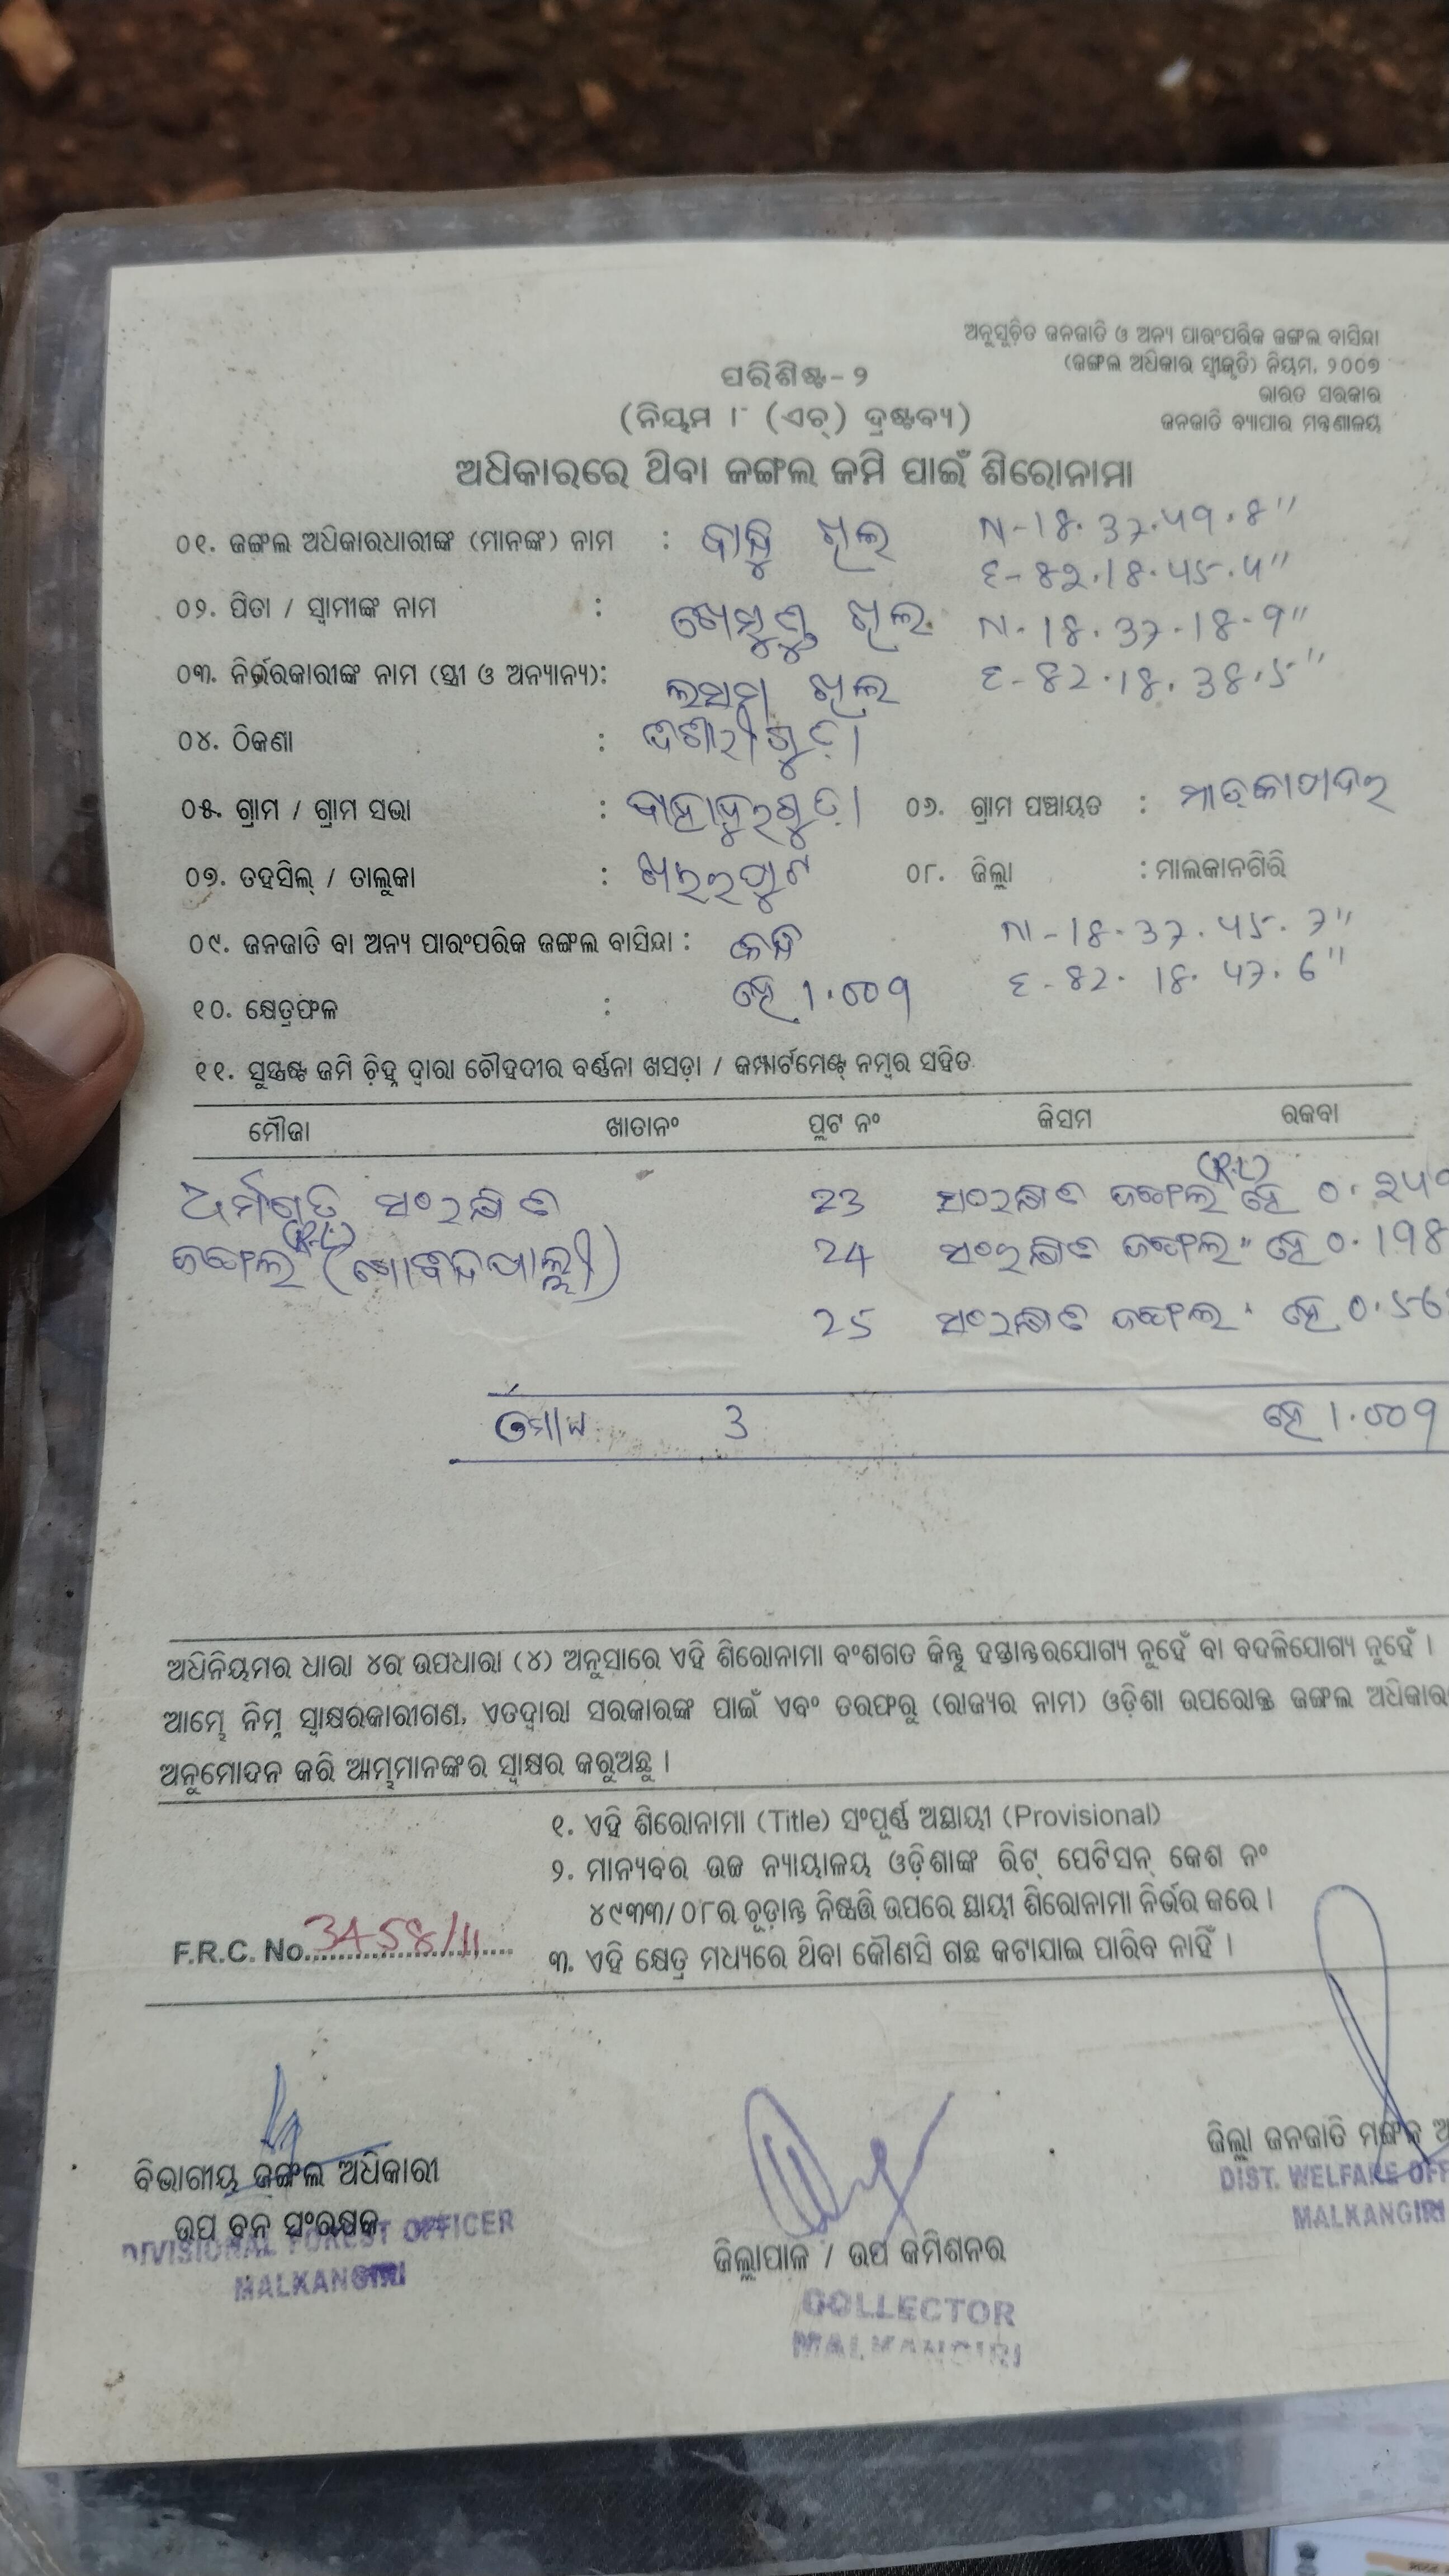 ଅନୁସୂଚିତ ଜନଜାତି ଓ ଅନ୍ୟ ପାରଂପରିକ ଜଙ୍ଗଲ ବାସିନ୍ଦା
(ଜଙ୍ଗଲ ଅଧିକାର ସ୍ୱୀକୃତି) ନିୟମ, ୨୦୦୭
ଭାରତ ସରକାର
ଜନଜାତି ବ୍ୟାପାର ମନ୍ତ୍ରଣାଳୟ
ପରିଶିଷ୍ଟ-୨
(ନିୟମ ୮ (ଏଚ୍) ଦ୍ରଷ୍ଟବ୍ୟ)
ଅଧିକାରରେ ଥିବା ଜଙ୍ଗଲ ଜମି ପାଇଁ ଶିରୋନାମା
୦୧. ଜଙ୍ଗଲ ଅଧିକାରଧାରୀଙ୍କ (ମାନଙ୍କ) ନାମ : ଖିଲ N-18.37.49.8"
E-82.18.45.4"
୦୨. ପିତା / ସ୍ୱାମୀଙ୍କ ନାମ : ଖିଲ N-18.37.18.9"
୦୩. ନିର୍ଭରକାରୀଙ୍କ ନାମ (ସ୍ତ୍ରୀ ଓ ଅନ୍ୟାନ୍ୟ): ଖିଲ E-82.18.38.5"
୦୪. ଠିକଣା :
୦୫. ଗ୍ରାମ / ଗ୍ରାମ ସଭା : ବାହାଦୁରଗୁଡ଼ା ୦୬. ଗ୍ରାମ ପଞ୍ଚାୟତ :
୦୭. ତହସିଲ୍ / ତାଲୁକା : ଖଇରପୁଟ ୦୮. ଜିଲ୍ଲା : ମାଲକାନଗିରି
୦୯. ଜନଜାତି ବା ଅନ୍ୟ ପାରଂପରିକ ଜଙ୍ଗଲ ବାସିନ୍ଦା : N-18.37.45.7"
୧୦. କ୍ଷେତ୍ରଫଳ : ହେ 1.009 E-82.18.47.6"
୧୧. ସୁସ୍ପଷ୍ଟ ଜମି ଚିହ୍ନ ଦ୍ୱାରା ଚୌହଦୀର ବର୍ଣ୍ଣନା ଖସଡ଼ା / କମ୍ପାର୍ଟମେଣ୍ଟ୍ ନମ୍ବର ସହିତ
ମୌଜା ଖାତାନଂ ପ୍ଲଟ ନଂ କିସମ ରକବା
ସଂରକ୍ଷିତ 23 ସଂରକ୍ଷିତ ଜଙ୍ଗଲ ହେ
ଜଙ୍ଗଲ 24 ସଂରକ୍ଷିତ ଜଙ୍ଗଲ " ହେ 0.198
25 ସଂରକ୍ଷିତ ଜଙ୍ଗଲ ହେ 0.56
3 ହେ 1.009
ଅଧିନିୟମର ଧାରା ୪ର ଉପଧାରା (୪) ଅନୁସାରେ ଏହି ଶିରୋନାମା ବଂଶଗତ କିନ୍ତୁ ହସ୍ତାନ୍ତରଯୋଗ୍ୟ ନୁହେଁ ବା ବଦଳିଯୋଗ୍ୟ ନୁହେଁ ।
ଆମ୍ଭେ ନିମ୍ନ ସ୍ୱାକ୍ଷରକାରୀଗଣ, ଏତଦ୍ୱାରା ସରକାରଙ୍କ ପାଇଁ ଏବଂ ତରଫରୁ (ରାଜ୍ୟର ନାମ) ଓଡ଼ିଶା ଉପରୋକ୍ତ ଜଙ୍ଗଲ ଅଧିକାର
ଅନୁମୋଦନ କରି ଆମ୍ଭମାନଙ୍କର ସ୍ୱାକ୍ଷର କରୁଅଛୁ ।
୧. ଏହି ଶିରୋନାମା (Title) ସଂପୂର୍ଣ୍ଣ ଅସ୍ଥାୟୀ (Provisional)
୨. ମାନ୍ୟବର ଉଚ୍ଚ ନ୍ୟାୟାଳୟ ଓଡ଼ିଶାଙ୍କ ରିଟ୍ ପେଟିସନ୍ କେଶ ନଂ
୪୯୩୩/୦୮ର ଚୂଡ଼ାନ୍ତ ନିଷ୍ପତ୍ତି ଉପରେ ସ୍ଥାୟୀ ଶିରୋନାମା ନିର୍ଭର କରେ ।
୩. ଏହି କ୍ଷେତ୍ର ମଧ୍ୟରେ ଥିବା କୌଣସି ଗଛ କଟାଯାଇ ପାରିବ ନାହିଁ ।
F.R.C. No. 3458/11
ବିଭାଗୀୟ ଜଙ୍ଗଲ ଅଧିକାରୀ
ଉପ ବନ ସଂରକ୍ଷକ
DIVISIONAL FOREST OFFICER
MALKANGIRI
ଜିଲ୍ଲାପାଳ / ଉପ କମିଶନର
COLLECTOR
MALKANGIRI
ଜିଲ୍ଲା ଜନଜାତି ମଙ୍ଗଳ
DIST. WELFARE OFF
MALKANGIRI